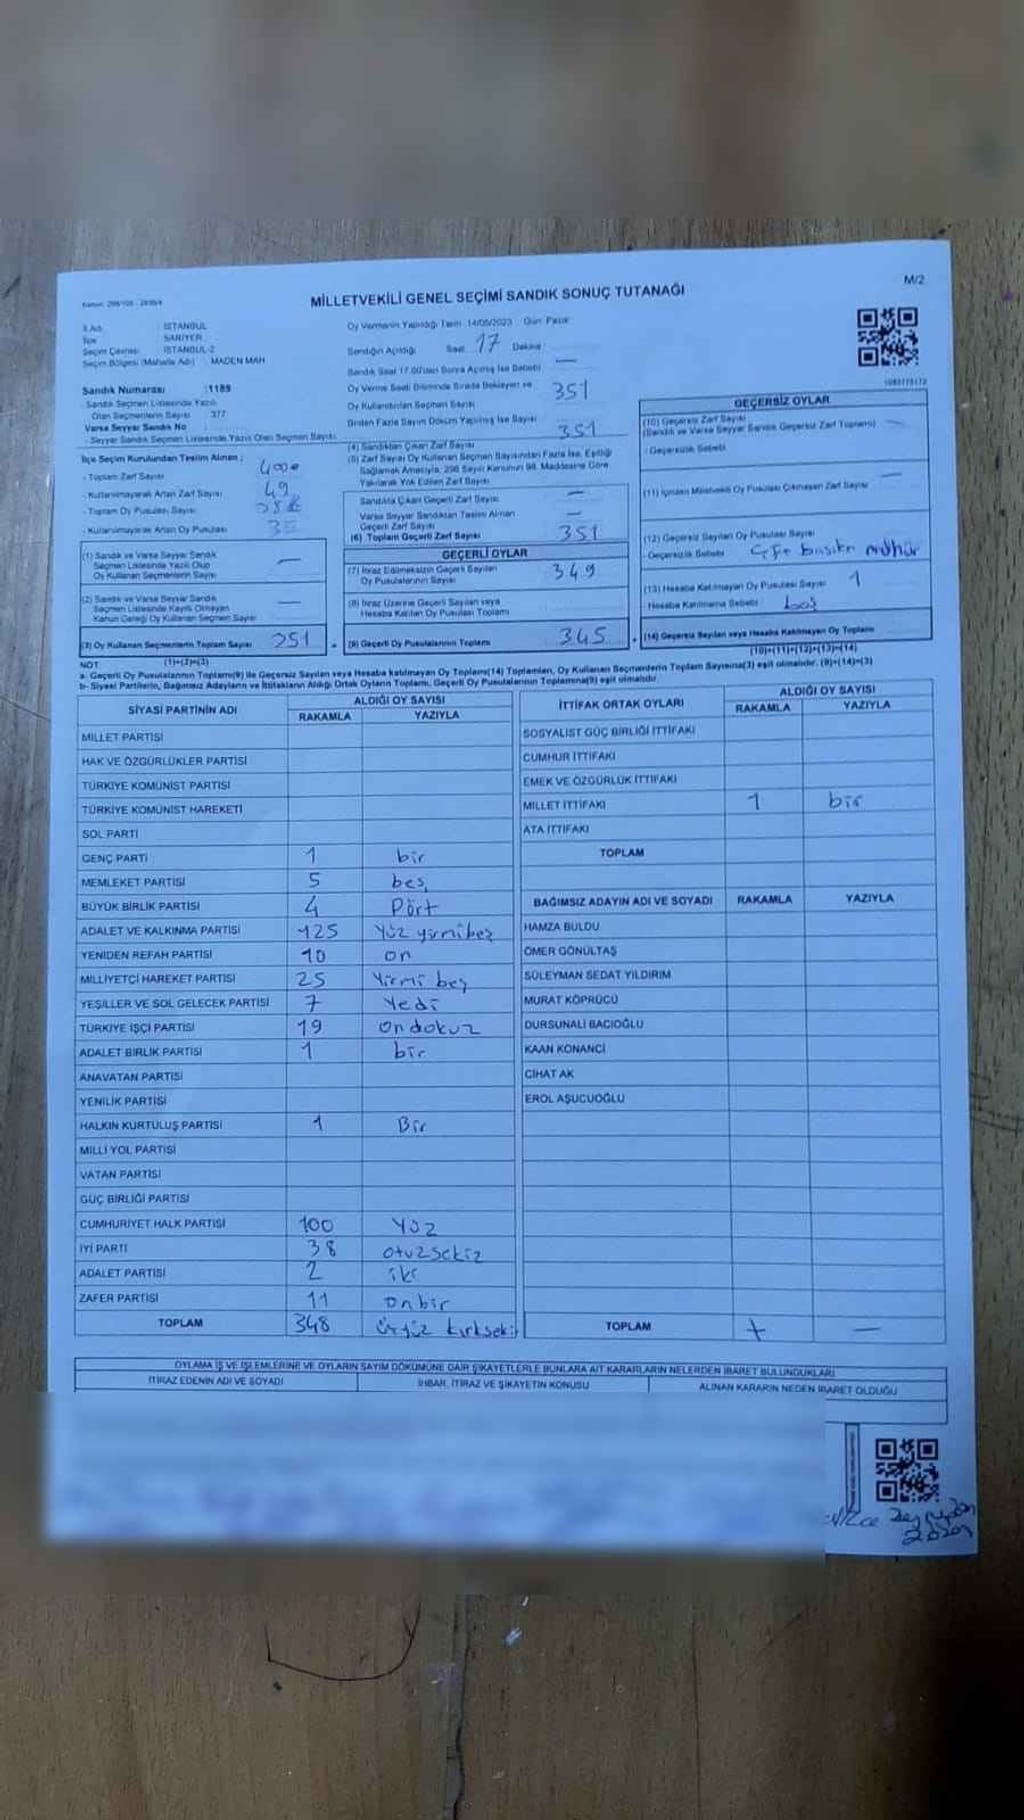 M/2
MİLLETVEKİLİ GENEL SEÇİMİ SANDIK SONUÇ TUTANAĞI
İl Adı : İSTANBUL
İlçe : SARIYER
Seçim Çevresi : İSTANBUL-2
Seçim Bölgesi (Mahalle Adı) : MADEN MAH
Sandık Numarası : 1189
- Sandık Seçmen Listesinde Yazılı
Olan Seçmenlerin Sayısı 377
Varsa Seyyar Sandık No
- Seyyar Sandık Seçmen Listesinde Yazılı Olan Seçmen Sayısı
İlçe Seçim Kurulundan Teslim Alınan ;
- Toplam Zarf Sayısı 400
- Kullanılmayarak Artan Zarf Sayısı 49
- Toplam Oy Pusulası Sayısı
- Kullanılmayarak Artan Oy Pusulası
(1) Sandık ve Varsa Seyyar Sandık
Seçmen Listesinde Yazılı Olup
Oy Kullanan Seçmenlerin Sayısı —
(2) Sandık ve Varsa Seyyar Sandık
Seçmen Listesinde Kayıtlı Olmayan
Kanun Gereği Oy Kullanan Seçmen Sayısı —
(3) Oy Kullanan Seçmenlerin Toplam Sayısı 351
(1)+(2)=(3)
Oy Vermenin Yapıldığı Tarih 14/05/2023 Gün Pazar
Sandığın Açıldığı Saat 17 Dakika
Sandık Saat 17.00'dan Sonra Açılmış İse Sebebi —
Oy Verme Saati Bitiminde Sırada Bekleyen ve
Oy Kullandırılan Seçmen Sayısı 351
Birden Fazla Sayım Döküm Yapılmış İse Sayısı
(4) Sandıktan Çıkan Zarf Sayısı 351
(5) Zarf Sayısı Oy Kullanan Seçmen Sayısından Fazla İse, Eşitliği
Sağlamak Amacıyla, 298 Sayılı Kanunun 98. Maddesine Göre
Yakılarak Yok Edilen Zarf Sayısı
Sandıkta Çıkan Geçerli Zarf Sayısı —
Varsa Seyyar Sandıktan Teslim Alınan
Geçerli Zarf Sayısı —
(6) Toplam Geçerli Zarf Sayısı 351
GEÇERLİ OYLAR
(7) İtiraz Edilmeksizin Geçerli Sayılan
Oy Pusulalarının Sayısı 349
(8) İtiraz Üzerine Geçerli Sayılan veya
Hesaba Katılan Oy Pusulası Toplamı
(9) Geçerli Oy Pusulalarının Toplamı 345
GEÇERSİZ OYLAR
(10) Geçersiz Zarf Sayısı
(Sandık ve Varsa Seyyar Sandık Geçersiz Zarf Toplamı) —
- Geçersizlik Sebebi
(11) İçinden Milletvekili Oy Pusulası Çıkmayan Zarf Sayısı —
(12) Geçersiz Sayılan Oy Pusulası Sayısı
- Geçersizlik Sebebi mühür
(13) Hesaba Katılmayan Oy Pusulası Sayısı 1
Hesaba Katılmama Sebebi boş
(14) Geçersiz Sayılan veya Hesaba Katılmayan Oy Toplamı
(10)+(11)+(12)+(13)=(14)
NOT
a- Geçerli Oy Pusulaları Toplamı(9) ile Geçersiz Sayılan veya Hesaba katılmayan Oy Toplamı(14) Toplamları, Oy Kullanan Seçmenlerin Toplam Sayısına(3) eşit olmalıdır. (9)+(14)=(3)
b- Siyasi Partilerin, Bağımsız Adayların ve İttifakların Aldığı Ortak Oyların Toplamı, Geçerli Oy Pusulalarının Toplamına(9) eşit olmalıdır.
SİYASİ PARTİNİN ADI ALDIĞI OY SAYISI
RAKAMLA YAZIYLA
MİLLET PARTİSİ
HAK VE ÖZGÜRLÜKLER PARTİSİ
TÜRKİYE KOMÜNİST PARTİSİ
TÜRKİYE KOMÜNİST HAREKETİ
SOL PARTİ
GENÇ PARTİ 1 bir
MEMLEKET PARTİSİ 5 beş
BÜYÜK BİRLİK PARTİSİ 4 Dört
ADALET VE KALKINMA PARTİSİ 125 Yüz yirmibeş
YENİDEN REFAH PARTİSİ 10 on
MİLLİYETÇİ HAREKET PARTİSİ 25 Yirmi beş
YEŞİLLER VE SOL GELECEK PARTİSİ 7 Yedi
TÜRKİYE İŞÇİ PARTİSİ 19 ondokuz
ADALET BİRLİK PARTİSİ 1 bir
ANAVATAN PARTİSİ
YENİLİK PARTİSİ
HALKIN KURTULUŞ PARTİSİ 1 Bir
MİLLİ YOL PARTİSİ
VATAN PARTİSİ
GÜÇ BİRLİĞİ PARTİSİ
CUMHURİYET HALK PARTİSİ 100 YÜZ
İYİ PARTİ 38 otuzsekiz
ADALET PARTİSİ 2 iki
ZAFER PARTİSİ 11 onbir
TOPLAM 348 Üçyüz kırksekiz
İTTİFAK ORTAK OYLARI ALDIĞI OY SAYISI
RAKAMLA YAZIYLA
SOSYALİST GÜÇ BİRLİĞİ İTTİFAKI
CUMHUR İTTİFAKI
EMEK VE ÖZGÜRLÜK İTTİFAKI
MİLLET İTTİFAKI 1 bir
ATA İTTİFAKI
TOPLAM
BAĞIMSIZ ADAYIN ADI VE SOYADI RAKAMLA YAZIYLA
HAMZA BULDU
ÖMER GÖNÜLTAŞ
SÜLEYMAN SEDAT YILDIRIM
MURAT KÖPRÜCÜ
DURSUNALİ BACIOĞLU
KAAN KONANCİ
CİHAT AK
EROL AŞUCUOĞLU
TOPLAM + —
OYLAMA İŞ VE İŞLEMLERİNE VE OYLARIN SAYIM DÖKÜMÜNE DAİR ŞİKAYETLERLE BUNLARA AİT KARARLARIN NELERDEN İBARET BULUNDUKLARI
İTİRAZ EDENİN ADI VE SOYADI İHBAR, İTİRAZ VE ŞİKAYETİN KONUSU ALINAN KARARIN NEDEN İBARET OLDUĞU